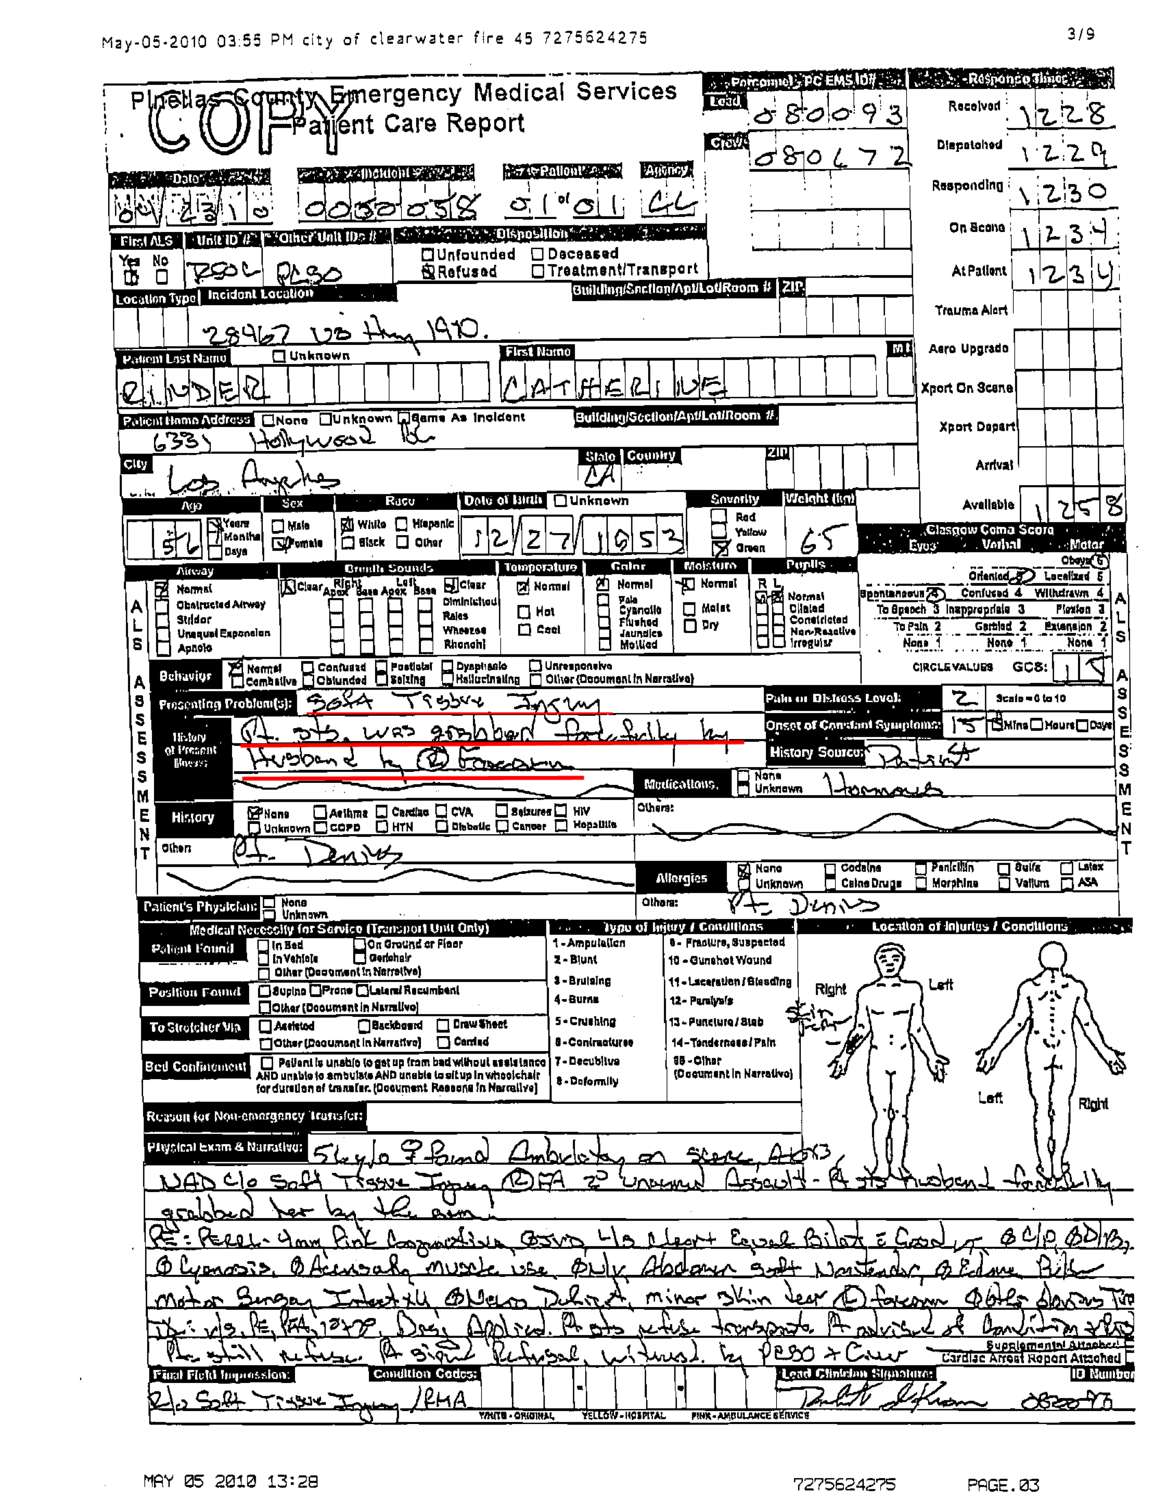 May-05-2010 03:55 PM city of clearwater fire 45 7275624275 3/9
Pinellas County Emergency Medical Services
Patient Care Report
COPY
Personnel - PC EMS ID# Response Times
Lead 080093 Received 1228
Crew 080672 Dispatched 1229
Date Incident Patient Agency
04 23 10 0050058 01 of 01 CL
Responding 1230
On Scene 1234
At Patient 1234
First ALS Unit ID # Other Unit IDs # Disposition
Yes No
Unfounded Deceased
Refused Treatment/Transport
PCSO
Location Type Incident Location Building/Section/Apt/Lot/Room # ZIP
28467 US Hwy 19 N.
Trauma Alert
Patient Last Name Unknown First Name MI
RINDER CATHERINE
Aero Upgrade
Xport On Scene
Patient Home Address None Unknown Same As Incident Building/Section/Apt/Lot/Room #
6331 Hollywood
Xport Depart
City State Country ZIP
Los Angeles CA
Arrival
Age Sex Race Date of Birth Unknown Severity Weight (kg)
Available 1258
56 Years Months Days
Male Female
White Hispanic
Black Other
12/27/1953
Red
Yellow
Green
65
Glasgow Coma Score
Eyes Verbal Motor
Obeys 6
Oriented 5 Localized 5
Spontaneous 4 Confused 4 Withdrawn 4
To Speech 3 Inappropriate 3 Flexion 3
To Pain 2 Garbled 2 Extension 2
None 1 None 1 None 1
CIRCLE VALUES GCS: 15
ALS ASSESSMENT
Airway Breath Sounds Temperature Color Moisture Pupils
Normal
Obstructed Airway
Stridor
Unequal Expansion
Apneic
Clear Right Left Clear
Apex Base Apex Base
Diminished
Rales
Wheezes
Rhonchi
Normal
Hot
Cool
Normal
Pale
Cyanotic
Flushed
Jaundice
Mottled
Normal
Moist
Dry
R L
Normal
Dilated
Constricted
Non-Reactive
Irregular
Behavior Normal Confused Postictal Dysphasic Unresponsive
Combative Obtunded Seizing Hallucinating Other (Document in Narrative)
ALS ASSESSMENT
Presenting Problem(s): Soft Tissue Injury
Pain or Distress Level: 2 Scale = 0 to 10
History of Present Illness: Pt. sts. was grabbed forcefully by
Husband by (R) Forearm
Onset of Constant Symptoms: 15 Mins Hours Days
History Source: Patient
Medications: None Unknown Hormones
Others:
History None Asthma Cardiac CVA Seizures HIV
Unknown COPD HTN Diabetic Cancer Hepatitis
Other: Pt. Denies
Allergies None Codeine Penicillin Sulfa Latex
Unknown Caine Drugs Morphine Valium ASA
Others: Pt Denies
Patient's Physician: None Unknown
Medical Necessity for Service (Transport Unit Only) Type of Injury / Conditions Location of Injuries / Conditions
Patient Found In Bed On Ground or Floor
In Vehicle Gerichair
Other (Document in Narrative)
Position Found Supine Prone Lateral Recumbent
Other (Document in Narrative)
To Stretcher Via Assisted Backboard Draw Sheet
Other (Document in Narrative) Carried
Bed Confinement Patient is unable to get up from bed without assistance
AND unable to ambulate AND unable to sit up in wheelchair
for duration of transfer. (Document Reasons in Narrative)
1 - Amputation
2 - Blunt
3 - Bruising
4 - Burns
5 - Crushing
6 - Contractures
7 - Decubitus
8 - Deformity
9 - Fracture, Suspected
10 - Gunshot Wound
11 - Laceration / Bleeding
12 - Paralysis
13 - Puncture / Stab
14 - Tenderness / Pain
(Document in Narrative)
Right Left
Skin Tear
Left Right
Reason for Non-emergency Transfer:
Physical Exam & Narrative: y/o ♀ found Ambulatory on scene, AOX3,
NAD c/o Soft Tissue Injury (R) FA 2° unarmed Assault - Pt sts husband forcefully
grabbed her by the arm.
PE: PERRL - 4mm, Pink Conjunctiva, JVD, L/S Clear + Equal Bilat
Cyanosis, Accessory muscle use, N/V, Abdomen Soft Nontender, Edema,
Motor Sensory Intact x4 Neuro Deficit, minor skin tear forearm other obvious
Tx: v/s, PE, Applied. Pt sts refuse transport. Pt advised of Condition
Pt. still refuse. Pt signed Refusal, witnessed by PCSO + Crew
Supplemental Attached
Cardiac Arrest Report Attached
Final Field Impression: Condition Codes: Lead Clinician Signature: ID Number
Soft Tissue Injury / RMA 080093
WHITE - ORIGINAL YELLOW - HOSPITAL PINK - AMBULANCE SERVICE
MAY 05 2010 13:28 7275624275 PAGE.03